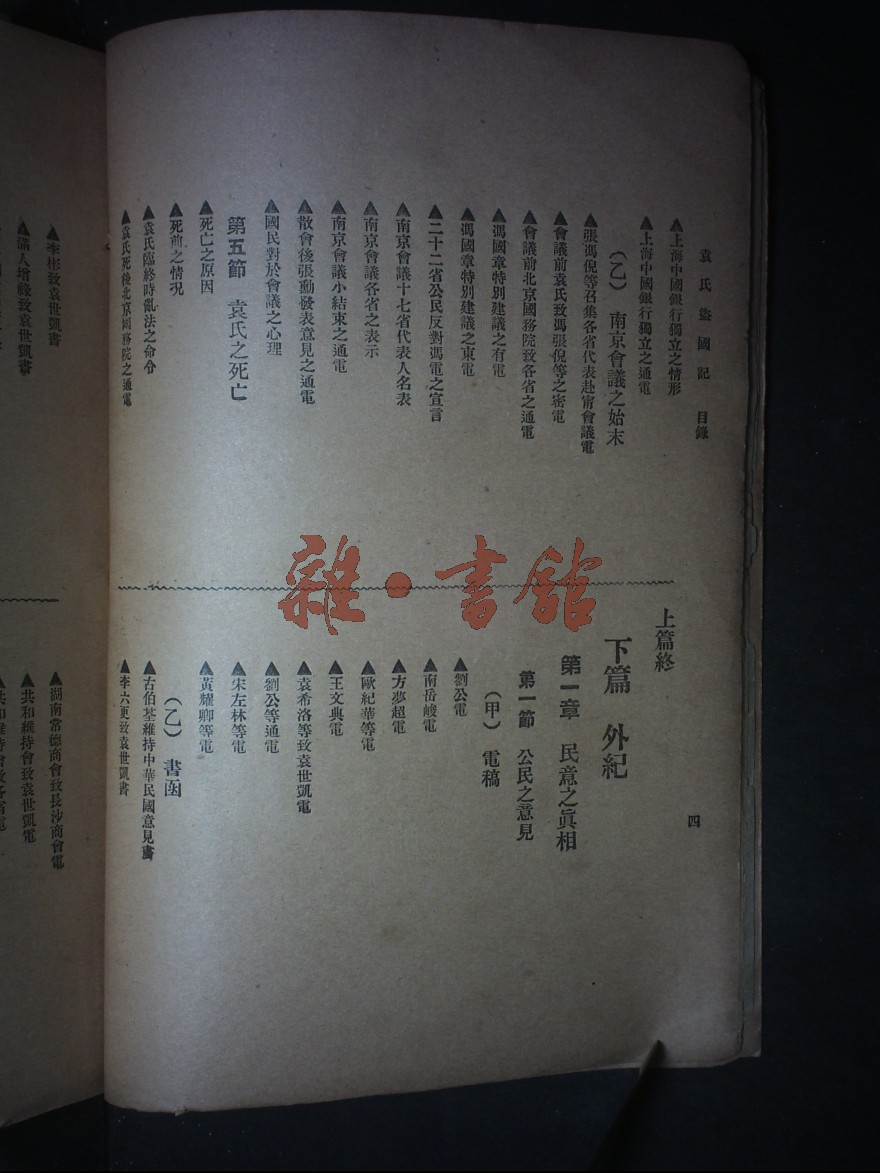 袁氏盜國記 目錄
四
▲上海中國銀行獨立之情形
▲上海中國銀行獨立之通電
(乙) 南京會議之始末
▲張馮倪等召集各省代表赴甯會議電
▲會議前袁氏致馮張倪等之密電
▲會議前北京國務院致各省之通電
▲馮國章特別建議之有電
▲馮國章特別建議之東電
▲二十二省公民反對馮電之宣言
▲南京會議十七省代表人名表
▲南京會議各省之表示
▲南京會議小結束之通電
▲散會後張勳發表意見之通電
▲國民對於會議之心理
第五節 袁氏之死亡
▲死亡之原因
▲死前之情况
▲袁氏臨終時亂法之命令
▲袁氏死後北京國務院之通電
上篇終
下篇 外紀
第一章 民意之眞相
第一節 公民之意見
(甲) 電稿
▲劉公電
▲南岳峻電
▲方夢超電
▲歐紀華等電
▲王文典電
▲袁希洛等致袁世凱電
▲劉公等通電
▲宋左林等電
▲黃耀卿等電
(乙) 書函
▲古伯荃維持中華民國意見書
▲李六更致袁世凱書
▲李彬致袁世凱書
▲滿人增祿致袁世凱書
▲湖南常德商會致長沙商會電
▲共和維持會致袁世凱電
▲共和維持會致各省電
雜·書館